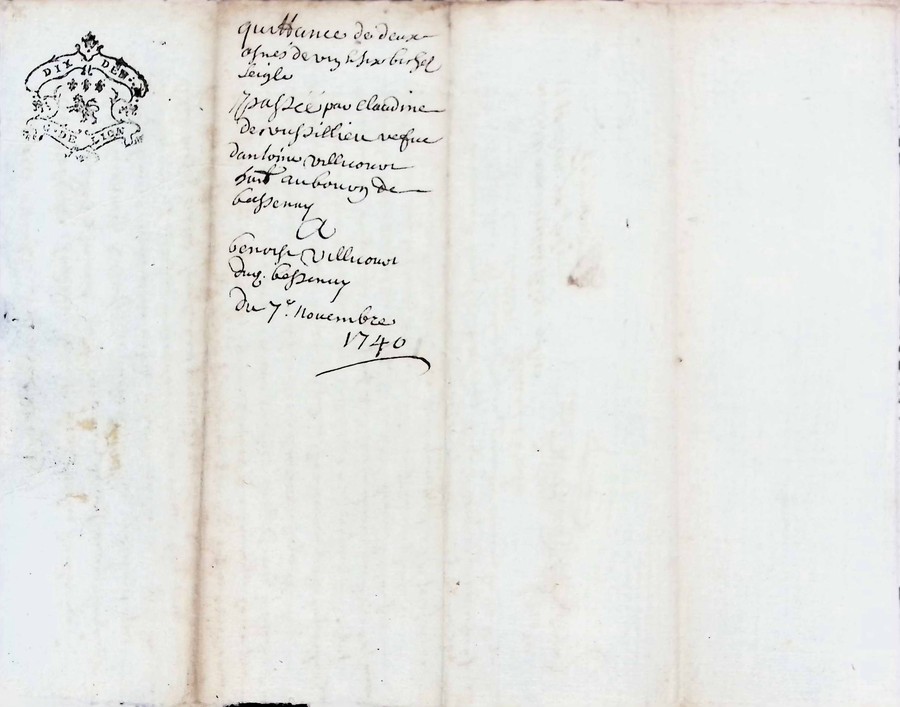 DIX DEN.
G. DE LION
quittance de deux
asnés de vingt six bichet
seigle
passéé par claudine
de vefue
dantoine villecourt
au bourg de
bessenay
A
benoist villecourt
dud. bessenay
du 7e. novembre
1740